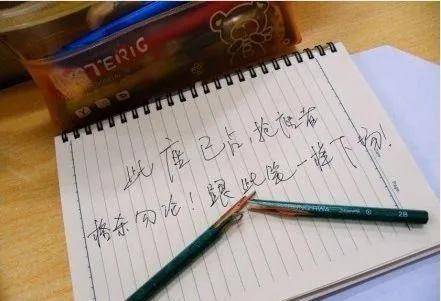 TERIG
此座已占,抢座者
格杀勿论!跟此笔一样下场!
2B